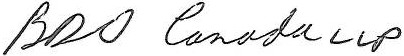 BDO Canada LLP